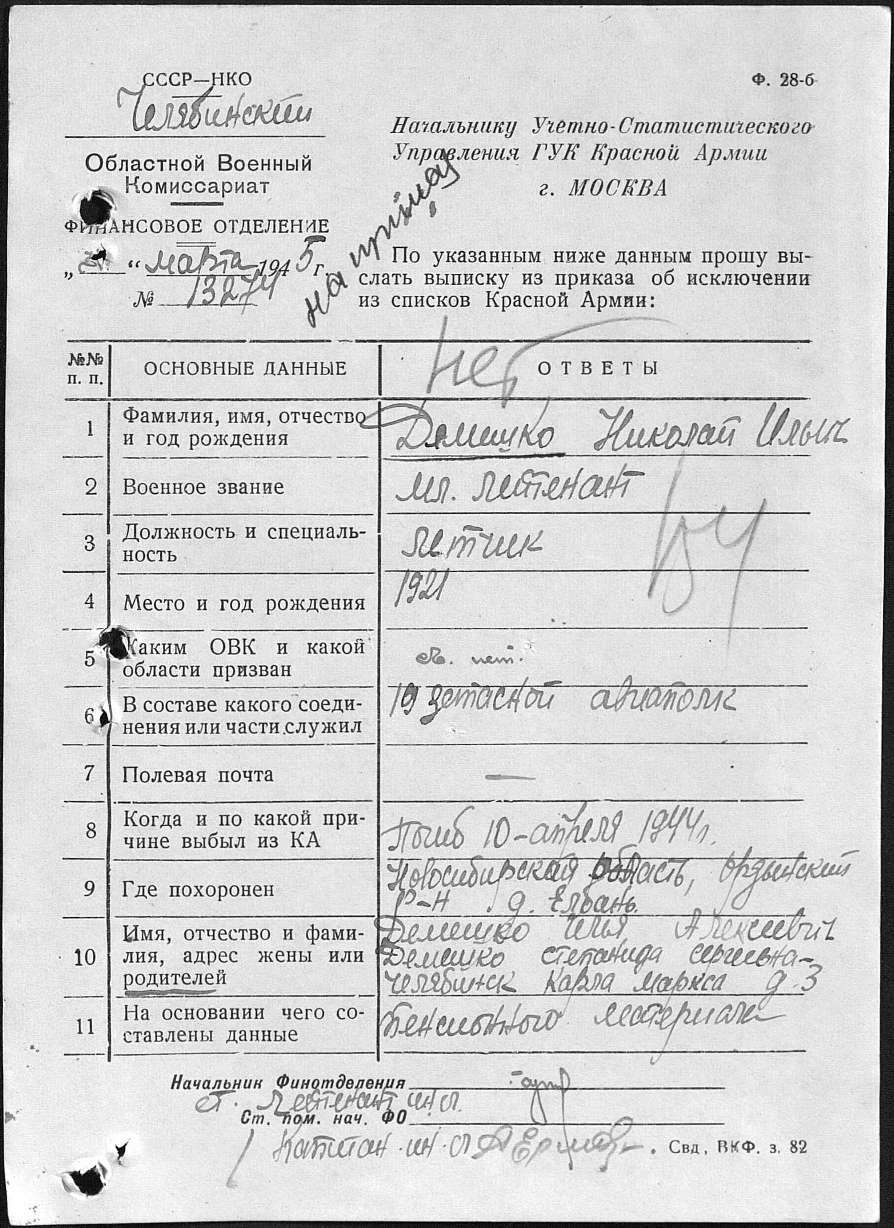 СССР—НКО
Ф. 28-б
Челябинский
Областной Военный
Комиссариат
ФИНАНСОВОЕ ОТДЕЛЕНИЕ
„ “ марта 1945 г.
№ 13274
Начальнику Учётно-Статистического
Управления ГУК Красной Армии
г. МОСКВА
на
По указанным ниже данным прошу вы-
слать выписку из приказа об исключении
из списков Красной Армии:
№№ п. п.
ОСНОВНЫЕ ДАННЫЕ
нет
ОТВЕТЫ
1 Фамилия, имя, отчество и год рождения
Демешко Николай Ильич
2 Военное звание
мл. летенант
3 Должность и специаль-ность
летчик
4 Место и год рождения
1921
5 Каким ОВК и какой области призван
нет.
6 В составе какого соеди-нения или части служил
19 запасной авиаполк
7 Полевая почта
—
8 Когда и по какой при-чине выбыл из КА
Погиб 10-апреля 1944 г.
9 Где похоронен
Новосибирская область, Ордынский
р-н д. Елбань.
10 Имя, отчество и фами-лия, адрес жены или родителей
Демешко Илья Алексеевич
Демешко степанида сергеевна-
Челябинск Карла Маркса д-3
11 На основании чего со-ставлены данные
Пенсионного материала
Начальник Финотделения
ст. летенант
Ст. пом. нач. ФО
Капитан
Свд, ВКФ. з. 82